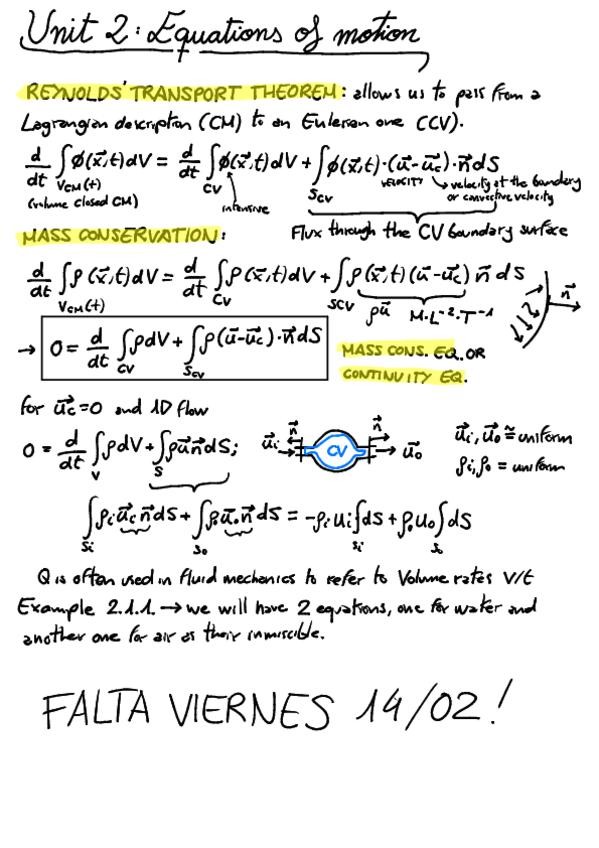 Unit 2: Equations of motion
REYNOLDS' TRANSPORT THEOREM: allows us to pass from a
Lagrangian description (CM) to an Eulerian one (CV).
d/dt ∫ϕ(x⃗,t)dV = d/dt ∫ϕ(x⃗,t)dV + ∫ϕ(x⃗,t)·(u⃗-u⃗c)·n⃗dS
VCM(t) CV SCV
(volume closed CM) intensive VELOCITY ↳ velocity at the boundary
or convective velocity
Flux through the CV boundary surface
MASS CONSERVATION:
d/dt ∫ρ(x⃗,t)dV = d/dt ∫ρ(x⃗,t)dV + ∫ρ(x⃗,t)(u⃗-u⃗c) n⃗ dS
VCM(t) CV SCV
ρu⃗ M·L⁻²·T⁻¹ n⃗
→ 0 = d/dt ∫ρdV + ∫ρ(u⃗-u⃗c)·n⃗dS
CV SCV
MASS CONS. EQ. OR
CONTINUITY EQ.
for u⃗c=0 and 1D flow
0 = d/dt ∫ρdV + ∫ρu⃗n⃗dS;
V S
u⃗i n⃗ CV n⃗ u⃗o
u⃗i, u⃗o ≅ uniform
ρi, ρo = uniform
∫ρi u⃗c n⃗dS + ∫ρo u⃗o n⃗ dS = -ρi ui∫dS + ρo uo∫dS
Si So Si So
Q is often used in fluid mechanics to refer to Volume rates V/t
Example 2.1.1. → we will have 2 equations, one for water and
another one for air as their inmiscible.
FALTA VIERNES 14/02!